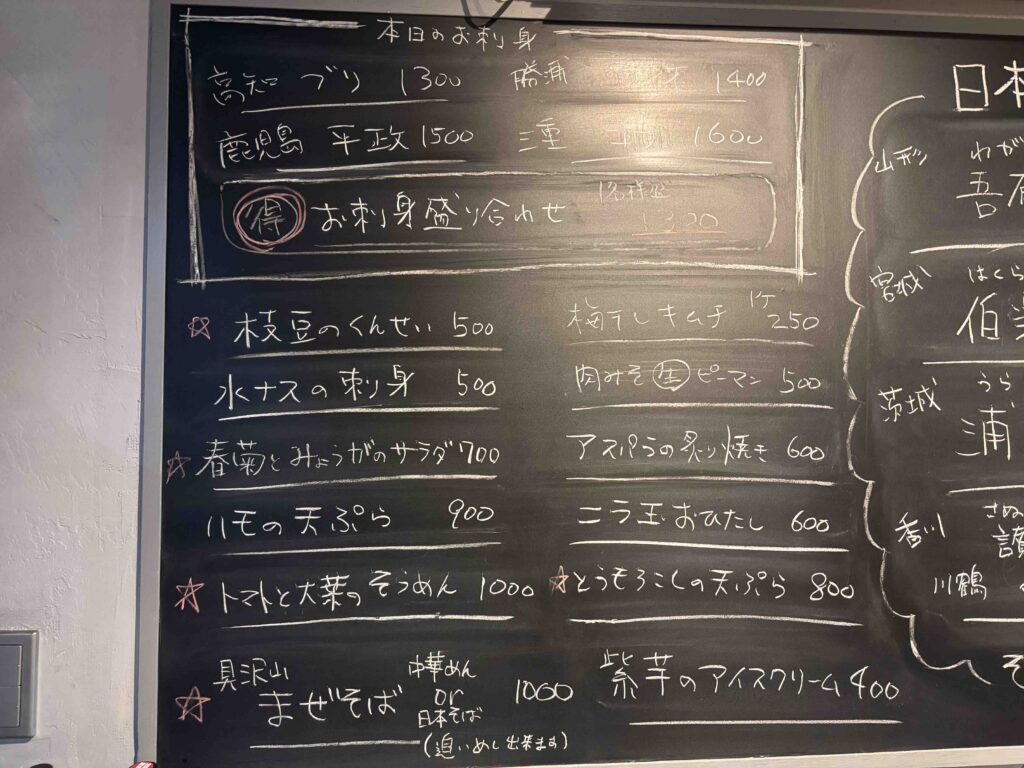 本日のお刺身
高知 ブリ 1300
勝浦 1400
鹿児島 平政 1500
三重 1600
得 お刺身盛り合わせ
枝豆のくんせい 500
梅干しキムチ 1ケ 250
水ナスの刺身 500
肉みそ生ピーマン 500
春菊とみょうがのサラダ 700
アスパラの炙り焼き 600
ハモの天ぷら 900
ニラ玉おひたし 600
トマトと大葉のそうめん 1000
とうもろこしの天ぷら 800
具沢山
まぜそば 中華めん or 日本そば 1000
(追いめし出来ます)
紫芋のアイスクリーム 400
日本
山形 わが
吾
宮城 はくら
伯
茨城 うら
浦
香川 さぬ
讃
川鶴
そ